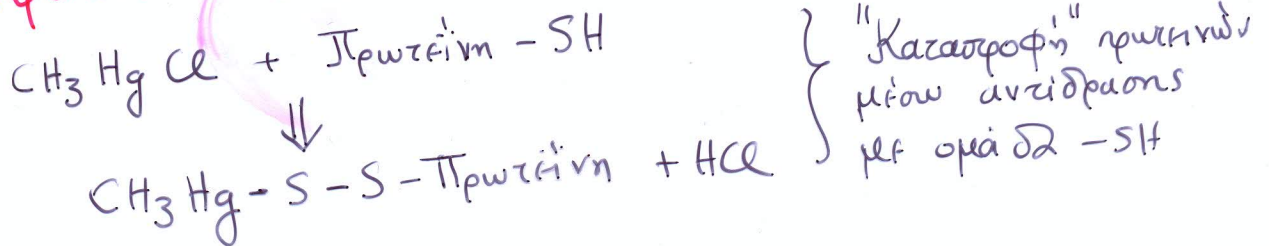 CH₃HgCl + Πρωτεΐνη - SH
⇓
CH₃Hg - S - S - Πρωτεΐνη + HCl
"Καταστροφή" πρωτεινών
μέσω αντίδρασης
με ομάδα -SH